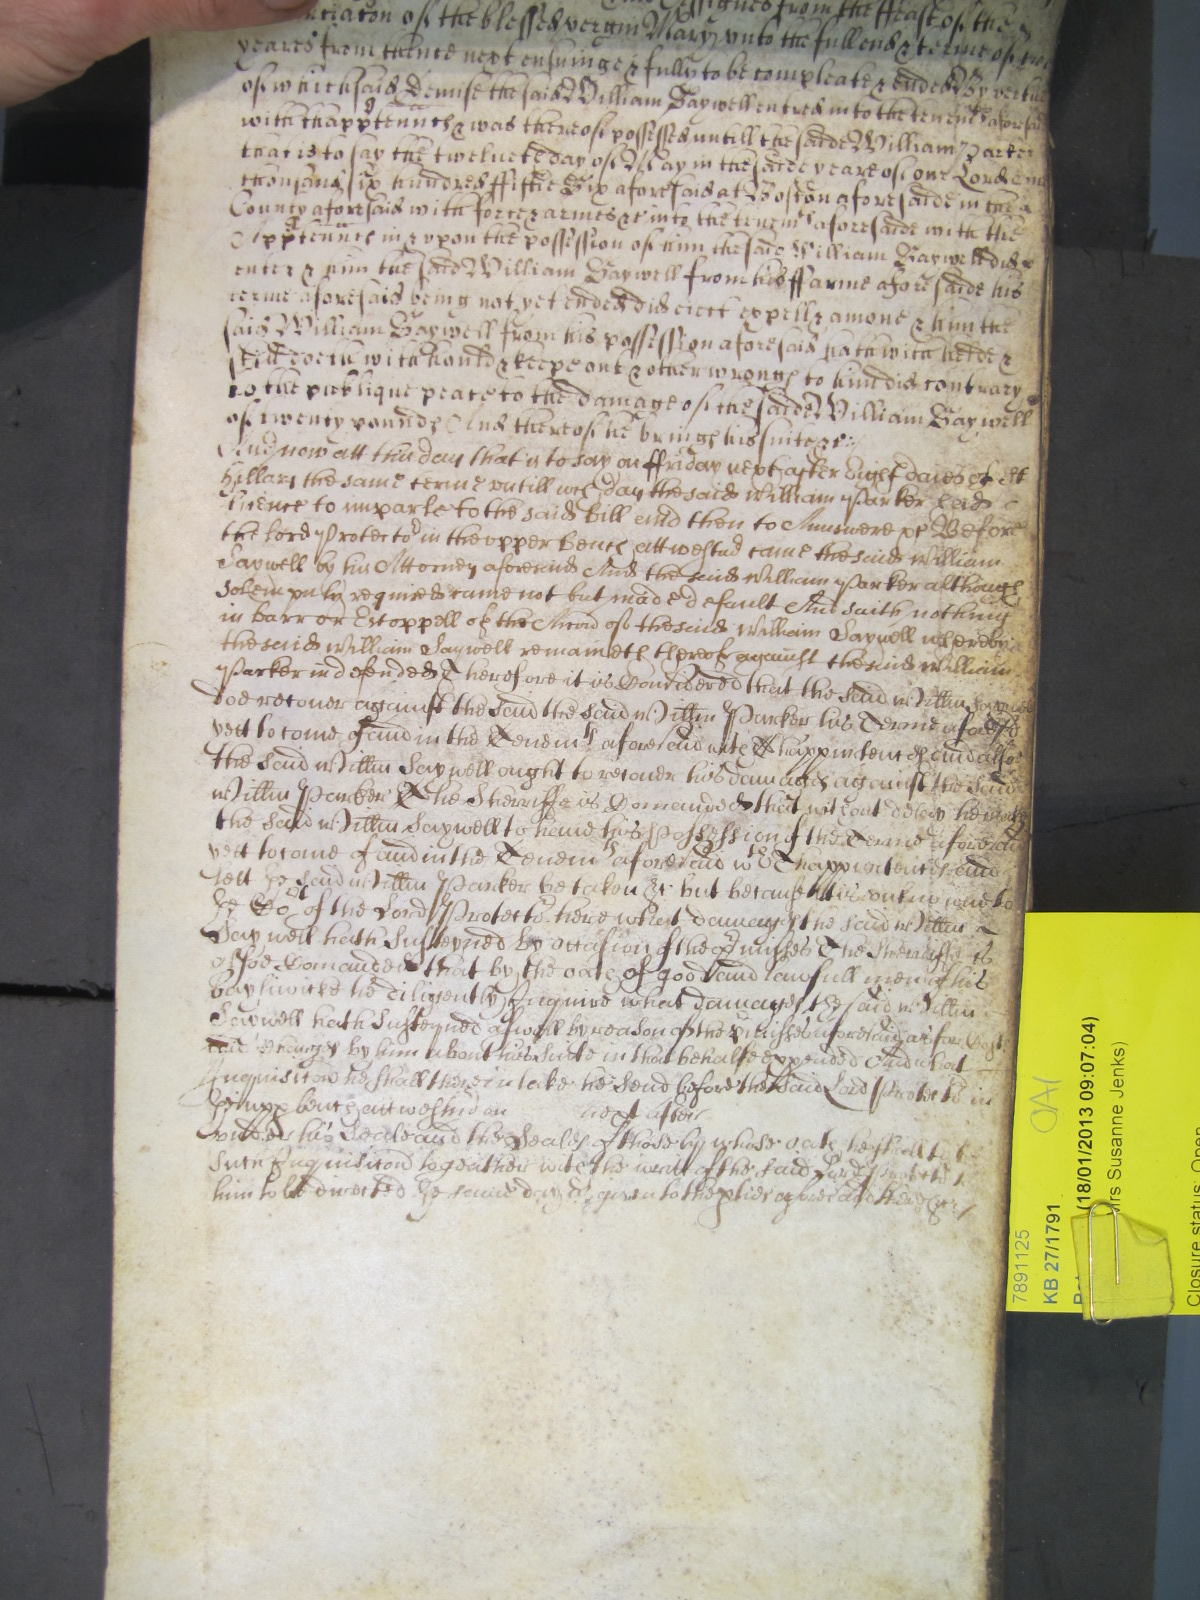 assignes from the ffeast of the
Annuntiacon of the blessed vergin Mary vnto the full end & terme of two
yeares from thence next ensuinge & fully to be compleate & ended By vertue
of which said demise the said William Saywell entred into the tenemts aforesaid
with thapptennces & was thereof possessed untill the saide William Parker
that is to say the twelueth day of May in the saide yeare of our Lord one
thousand six hundred ffiftie Six aforesaid at Boston aforesaide in the
County aforesaid with force & armes &c into the tenemts aforesaide with the
Apptennces in & vpon the possession of him the said William Saywell did
enter & him the said William Saywell from his ffarme aforesaide his
terme aforesaid being not yet ended did eiect expell & amove & him the
said William Saywell from his possession aforesaid hath with helde &
still doeth with hould & keepe out & other wronges to him did contrary
to the publique peace to the damage of the saide William Saywell
of twenty pounds And thereof he bringes his suite &c
And now att this day that is to say on ffriday next after Eight daies of St
Hillary the same terme vntill wch day the said William Parker had
licence to imparle to the said bill and then to Answere &c Before
the lord Protector in the vpper Bench att westmr came the said William
Saywell by his Attorney aforesaid And the said William Parker although
solempnly required came not but made default And saith nothing
in barr or Estoppell of the Accon of the said William Saywell whereby
the said William Saywell remaineth thereof against the said William
Parker indefended Therefore it is Considered that the said Willm Saywell
doe recouer against the said the said Willm Parker his Terme aforesd
yett to come of and in the Tenemts aforesaid with Thappurtennces and alsoe
the said Willm Saywell ought to recouer his damages against the said
Willm Parker The Sherriffe is Comanded that without delay he cause
the said Willm Saywell to haue his Possession of the Terme aforesaid
yett to come of and in the Tenemts aforesaid wth Thappurtennces and
lett ye said Willm Parker be taken &c but because it is vnknowne to
ye Cort of the Lord Protector here what damages the said Willm
Saywell hath Susteyned by occasion of the pmisses The Sherriffe is
alsoe Comanded that by the oath of good and lawfull men of his
bayliwicke he diligently Inquire what damages the said Willm
Saywell hath Susteyned aswell by reason of the pmisses aforesaid as for Costs
and Charges by him about his Suite in that behalfe expended And what
Inquisition he shall therein take he send before the said Lord Protector in
ye upp bench att westmr on next after
vnder his Seale and the Seales of those by whose oath he shall take
such Inquisition togeather with the writt of the said Lord Protector
him to be directed ye same day is given to the pties aforesaid there &c
7891125
KB 27/1791
(18/01/2013 09:07:04)
Mrs Susanne Jenks)
Closure status: Open